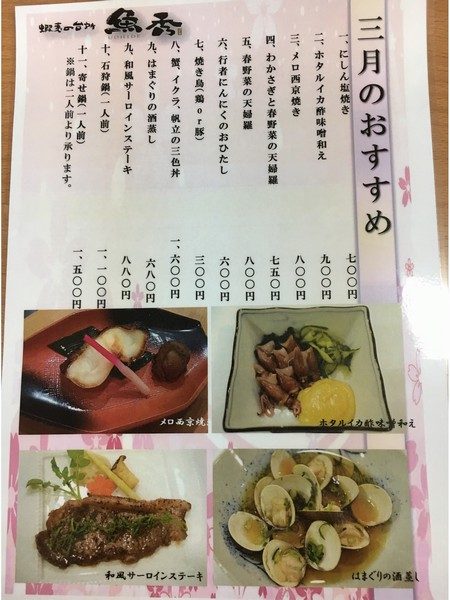 三月のおすすめ
一、にしん塩焼き 七〇〇円
二、ホタルイカ酢味噌和え 九〇〇円
三、メロ西京焼き 八〇〇円
四、わかさぎと春野菜の天婦羅 七五〇円
五、春野菜の天婦羅 八〇〇円
六、行者にんにくのおひたし 六〇〇円
七、焼き鳥(鶏or豚) 三〇〇円
八、蟹、イクラ、帆立の三色丼 一、六〇〇円
九、はまぐりの酒蒸し 六八〇円
九、和風サーロインステーキ 八八〇円
十、石狩鍋(一人前) 一、一〇〇円
十一、寄せ鍋(一人前) 一、五〇〇円
※鍋は二人前より承ります。
魚秀
メロ西京焼
ホタルイカ酢味噌和え
和風サーロインステーキ
はまぐりの酒蒸し